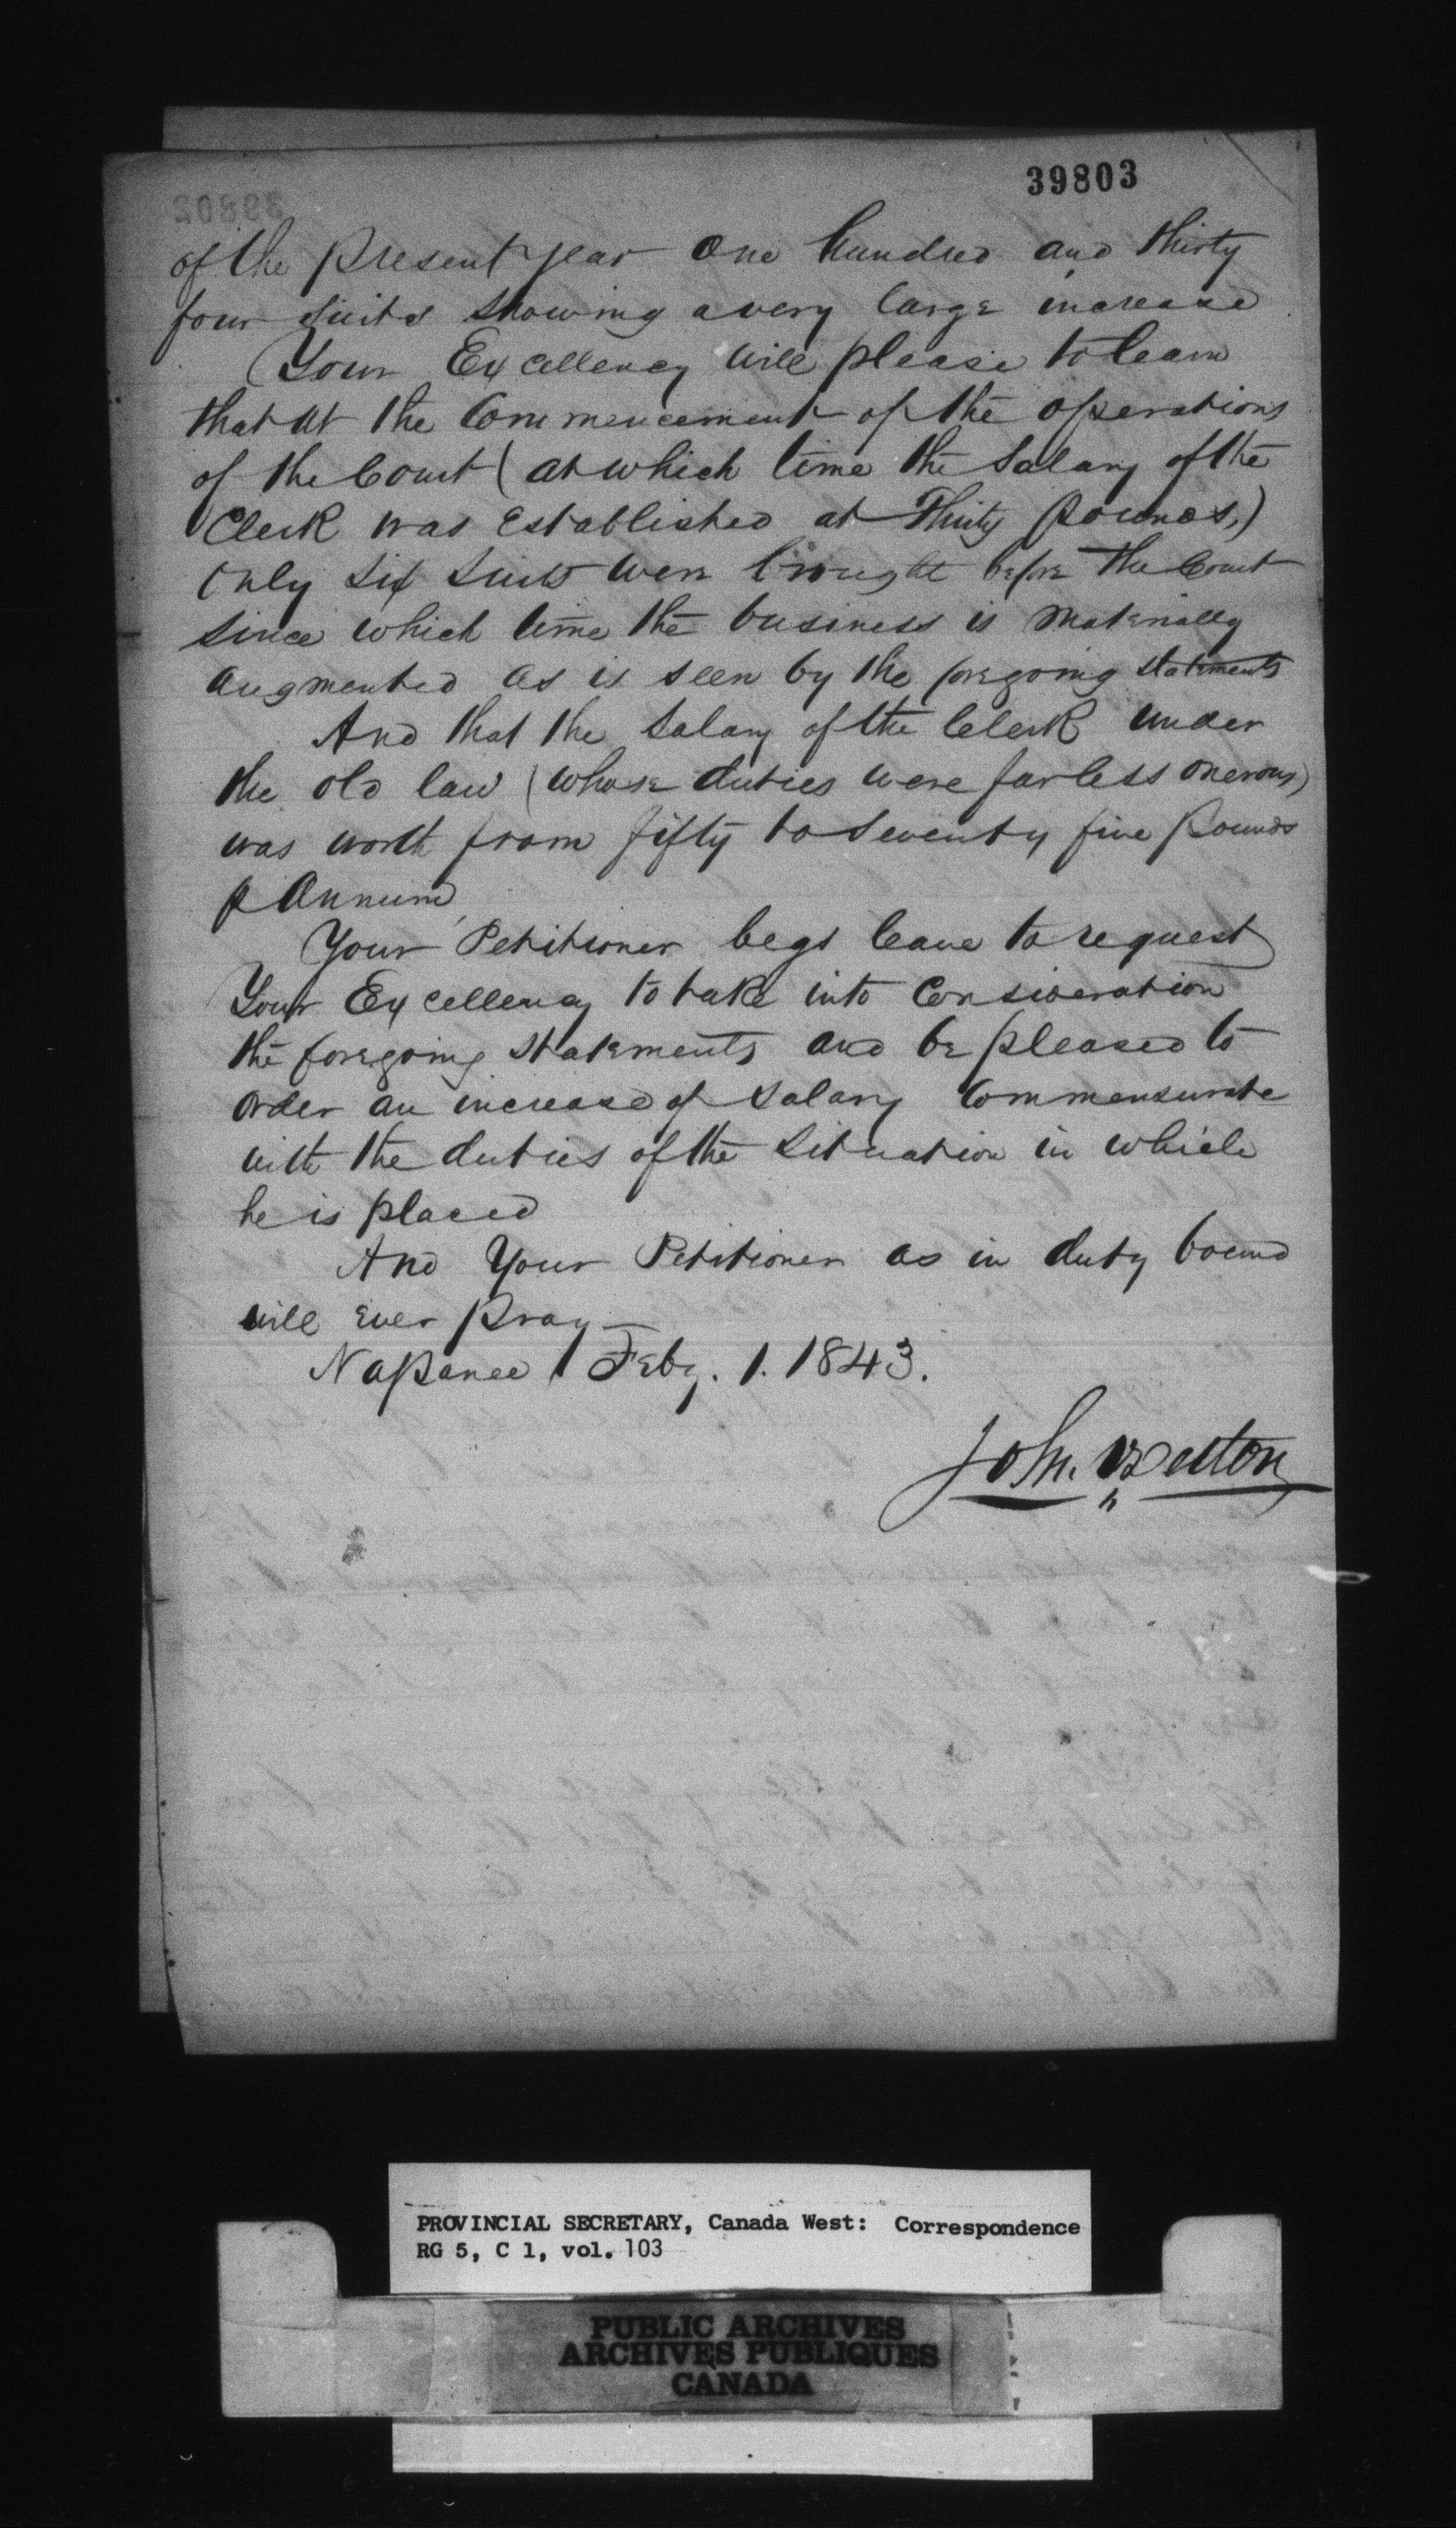 39803
of the present year One hundred and thirty
four suits showing a very large increase
Your Excellency will please to learn
that at the Commencement of the operations
of the Court (at which time the Salary of the
Clerk was Established at Thirty Pounds,)
Only six Suits were brought before the Court
since which time the business is materially
augmented as is seen by the foregoing statements
And that the Salary of the Clerk under
the old law (whose duties were far less onerous)
was worth from fifty to Seventy five Pounds
p Annum
Your Petitioner begs leave to request
Your Excellency to take into Consideration
the foregoing statements and be pleased to
order an increase of Salary Commensurate
with the duties of the Situation in which
he is placed
And Your Petitioner as in duty bound
will ever Pray
Napanee Feby. 1. 1843.
John
PROVINCIAL SECRETARY, Canada West: Correspondence
RG 5, C 1, vol. 103
PUBLIC ARCHIVES
ARCHIVES PUBLIQUES
CANADA